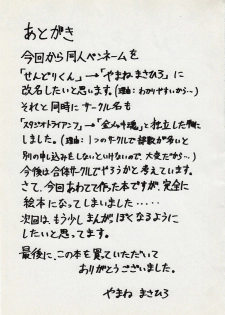 あとがき
今回から同人ペンネームを
「せんどりくん」→「やまねまさひろ」に
改名したいと思います。(理由:わかりやすいから…)
それと同時にサークル名も
「スタジオトライアンフ」→「全人中魂」と独立した物に
しました。(理由:1つのサークルで部数が多いと
別の申し込みをしないといけないので、大変だから…)
今後は合体サークルでやろうかと考えています。
さて、今回あわてて作った本ですが、完全に
絵本になってしまいました・・・・・
次回は、もう少しまんがぽくなるように
したいと思ってます。
最後に、この本を買っていただいて
ありがとうございました。
やまね まさひろ